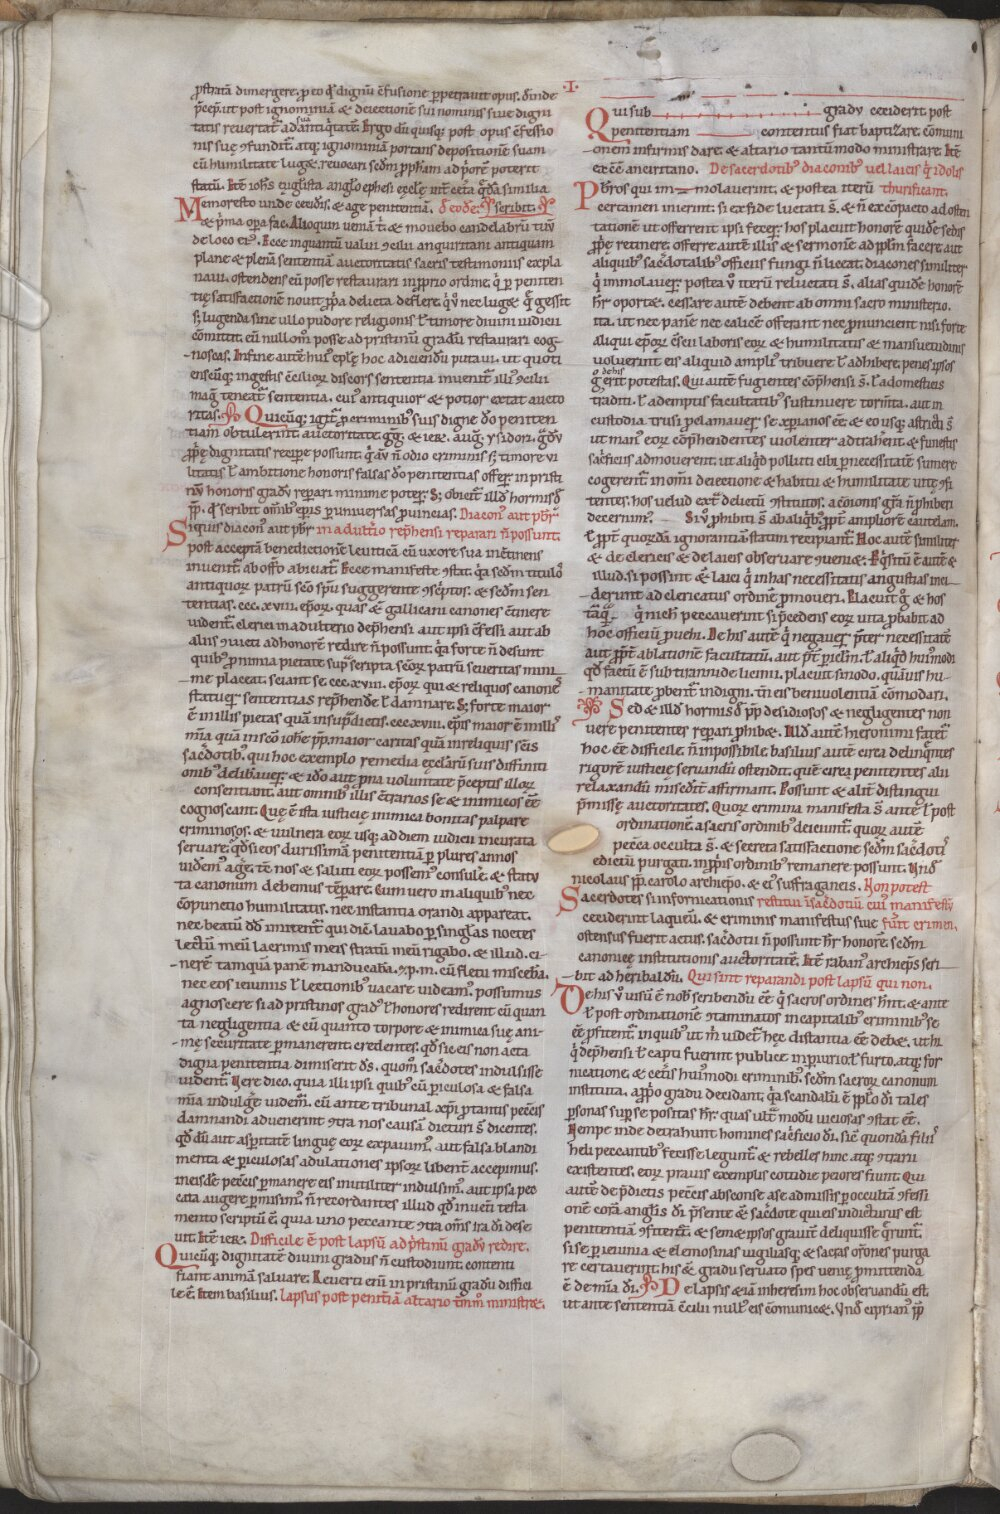 p̱stratā dimergere. p̱ eo qđ dignū c̄fusione p̱petravit opus. ð̄inde
p̄cep̄. ut post ignominiā & deiectionē sui nominis sive digni
tatis revertat᷑ ad suā antiq̇tatē. Ergo dū quisq; post opus c̄fessio
nis suę ꝯfundit᷑. atq; ignominiā portans depositionē suam
cū humilitate luget. revocari sc̄dm p̱phāā ad p̱orē poterit
statū. Itē ioh̄s ęvglista anglo ephesi ęcl̄ę int̄ cet̄a q̄dā similia
Memoresto unde cecidis. & age penitentiā. scribit.
& p̄ma op̱a fac. Alioquin veniā t̄. & movebo candelabrū tuū
de loco ei᷒. Ecce inquantū valui ꝯcilii anquiritani antiquam
plane & plenā sententiā auctoritatis sacris testimoniis expla
navi. ostendens eū posse restaurari in p̱prio ordine. q̇ p̱ peniten
tię satisfactionē novit p̱p̱a delicta deflere. q̇ v̊ nec luget q̄ gessit
s; lugenda sine ullo pudore religionis ł timore divini iudicii
cōmittit. eū nullom̊ posse ad pristinū gradū restaurari cog
noscas. Infine autē hui᷒ ep̄lę hoc adiciendū putavi. ut quoti
enscūq; ingestis c̄ciliorꝝ discors sententia invenit᷑ illi᷒ ꝯcilii
mag̊ teneat᷑ sententia. cui᷒ antiquior & potior extat aucto
ritas. Quicūq; igit᷑ p̱ criminib᷒ suis digne d̄o peniten
tiam obtulerint. auctoritate. gg̅. & ier̄. aug᷒. ysidori. gradū
p̱p̱ę dignitatis recipe possunt. q̇ aū n̄ odio criminis s; timore vi
litatis ł ambitione honoris falsas d̄o penitentias offer̄. in pristi
nū honoris gradū repari minime poter̄. S; obicit᷑ illđ hormisđ
pp̄. qđ scribit om̄ib᷒ ep̄is p̱ universas p̱vincias. Diacon᷒ aut pb̄r
Siquis diacon᷒ aut pb̄r in adult̄io rep̄hensi reparari n̄ possunt.
post acceptā benedictionē leviticā cū uxore sua in c̄tinens
invenit᷑. ab off̄o abiciat᷑. Ecce manifeste ꝯstat. q̇a sc̄dm titulos
antiquorꝝ patrū sc̄o sp̄u suggerente ꝯsc̄ptos. & sc̄dm sen
tentias. ccc. xviii. ep̄orꝝ. quas & gallicani canones c̄tinere
vident᷑. clerici in adulterio dep̄hensi aut ipsi c̄fessi aut ab
aliis ꝯvicti ad honorē redire n̄ possunt. q̇a forte n̄ desunt
quib᷒ p̱ nimia pietate supͣscripta sc̄orꝝ patrū severitas mini
me placeat. sciant se. ccc. xviii. ep̄orꝝ qui & reliquos canones
statuer̄ sententias rep̄hend̄e ł damnare. S; forte maior
ē in illis pietas quā insup̱dictis. ccc. xviii. ep̄is maior ē in illi᷒
mīa quā in sc̄o ioh̄e pp̄. maior caritas quā in reliquis sc̄is
sacđotib᷒. qui hoc exemplo remedia ęcl̄arū suis diffiniti
onib᷒ delibaver̄. & ido aut p̱na voluntate p̄ceptis illorꝝ
consentiant. aut omnib᷒ illis c̄trarios se & inimicos ēē
cognoscant. Quę ē ista iusticię inimica bonitas palpare
criminosos. & vulnera eorꝝ usq; ad diem iudicii incurata
servare. qđ si eos durissimā penitentiā p̱ plures annos
videm᷒ agē. tē nos & saluti eorꝝ possem᷒ consule. & statu
ta canonum debemus tēpare. Cum vero in aliquib᷒ nec
cōpunctio humilitatis. nec instantia orandi appareat.
nec beatū dđ imitent᷑ qui dic̄. lavabo p̱ singlas noctes
lectū meū. lacrimis meis stratū meū rigabo. & illud. ci
nerē tamquā panē manducabā. & p. m. cū fletu miscebā.
nec eos ieiuniis ł lectionib᷒ vacare videam᷒. possumus
agnoscere si ad pristinos gradˢ ł honores redirent cū quan
ta negligentia & cū quanto torpore & inimica suę ani
mę securitate p̱manerent. credentes. qđ sic eis non acta
digna penitentia dimiserit ds̄. quom̊ sacđotes indulsisse
vident᷑. Vere dico. quia illi ipsi quib᷒ cū p̱iculosa & falsa
mīa indulgē videm᷒. cū ante tribunal xp̄i portantis pec̄cis
damnandi advenerint ꝯtra nos causā dicturi s̄ dicentes.
qđ dū aut asp̱itatē linguę eorꝝ expavim᷒. aut falsa blandi
menta & p̱iculosas adulationes ipsorꝝ libent᷑ accepimus.
in eisdē pec̄cis p̱manere eis inutiliter indulsim᷒. aut ipsa pec
cata augere p̱misim᷒. n̄ recordantes illud qđ in vet̄i testa
mento scriptū ē. quia uno peccante ꝯtra om̄s ira di̅ dese
vit. Itē ier̄. Difficile ē post lapsū ad p̱stinū gradū redire.
Quicūq; dignitatē divini gradus n̄ custodiunt. contenti
fiant animā salvare. Reverti eni̅ in pristinū gradū diffici
le ē. Item basilius. Lapsus post penit̄tiā altario tm̄m᷒ ministret.
.I.
Qui sub gradu ceciderit post
penitentiam contentus fiat baptizare. cōmuni
onem infirmis dare. & altario tantūmodo ministrare. Itē
ex c̄c̄ ancirritano. De sacerdotib᷒ diaconib᷒ vel laicis q̇ idolis
Pb̄ros qui immolaverint. & postea iterū thurificant.
certamen inierint. si ex fide luctati s̄. & n̄ ex c̄pacto ad osten
tationē ut offerrent ipsi fecer̄. hos placuit honorē quidē sedis
p̱p̱ę retinere. offerre autē illis & sermonē ad pp̄lm facere. aut
aliquib᷒ sacđotalib᷒ officiis fungi n̄ liceat. diacones similiter
q̇ immolaver̄. postea v̊ iterū reluctati s̄. alias quidē honorē
h̄r oportet. cessare autē debent ab omni sacro ministerio.
ita. ut nec panē nec calicē offerant nec p̱nuncient nisi forte
aliqui ep̄orꝝ c̄scii laboris eorꝝ & humilitatis & mansuetudinis
voluerint eis aliquid ampli᷒ tribuere ł adhibere. penes ipsos
de his g̊ erit potestas. Qui autē fugientes cōp̄hensi s̄. ł a domesticis
traditi. ł ademptis facultatib᷒ sustinuere torm̄ta. aut in
custodia trusi p̱clamaver̄ se xp̄ianos ēē. & eo usq; astricti s̄
ut man᷒ eorꝝ cōp̄hendentes violenter adtraherēt. & funestis
sac̄ficiis admoverent. ut aliq̇d polluti cibi p̱ necessitatē sumere
cogerent᷑. in om̄i deiectione & habitu & humilitate uti ꝯsis
tentes. hos velud extͣ delictū ꝯstitutos. a c̄ōionis gr̄a n̄ p̱hiberi
decernim᷒. Si v̊ p̱hibiti s̄ ab aliq̇b᷒ p̱p̱t ampliorē cautelam.
ł p̱p̱t quorđā ignorantiā statim recipiant᷑. Hoc autē similiter
& de clericis & de laicis observare ꝯvenit. P̱q̇situ ē autē &
illud. si possint & laici q̇ in has necessitatis angustias inci
derint ad clericatus ordinē p̱moveri. Placuit g̊ & hos
tāq̄ q̇ nich̄ peccaverint si p̄cedens eorꝝ vita p̱babit̄. ad
hoc officiū p̱vehi. De his autē q̇ negaver̄ p̄ter necessitatē
aut p̱p̱t ablationē facultatū. aut p̱t p̱icl̄m. ł aliq̇d hui᷒modi
qđ factū ē sub tirannide licinii. placuit sinodo. quāvis hu
manitate p̱bent᷑ indigni. tn̄ eis benivolentiā cōmodari.
Sed & illđ hormisđ pp̄ desidiosos & negligentes non
vere penitentes repari p̱hibet. Illđ autē hieronimi fatet᷑
hoc ēē difficile. n̄ inpossibile. basilius autē circa delinq̄ntes
rigorē iusticię servandū ostendit. quē circa penitentes alii
relaxandū misedit᷑ affirmant. Possunt & alit᷑ distingui
p̄missę auctoritates. Quorꝝ crimina manifesta s̄. ante ł post
ordinationē. a sacris ordinib᷒ deiciunt᷑. quorꝝ autē
pecc̄a occulta s̄. & secreta satisfactione sc̄dm sacđot̄
edictū purgati. in p̱p̱is ordinib᷒ remanere possunt. Unđ
nicolaus pp̄. carolo archiep̄o. & ei᷒ suffraganeis. Non potest
Sacerdotes si in fornicationis restitui ī sacđotiū cui᷒ manifestū
ceciderint laqueū. & criminis manifestus sive fuit crimen.
ostensus fuerit actus. sacđotii n̄ possunt h̄r honorē. sc̄dm
canonicę institutionis auctoritatē. Itē raban᷒ archiep̄s scri
bit ad heribaldū. Qui sint reparandi post lapsū qui non.
De his v̊ visū ē nob̄ scribendū ēē q̇ sacros ordines hn̄t. & ante
ł post ordinationē ꝯtaminatos in capitalib᷒ criminib᷒ se
ēē p̱fitent᷑. in quib᷒ ut m̄ videt᷑ hęc distantia ēē debet. ut hi
q̇ dep̄hensi ł capti fuerint publice in p̱iurio. ł furto. atq; for
nicatione. & cet̄is hui᷒modi criminib᷒. sc̄dm sacrorꝝ canonum
instituta. a p̱p̱o gradu decidant. q̇a scandalū ē pp̄lo di̅ tales
p̱sonas sup̱ se positas h̄r. quas ult̄ modū viciosas ꝯstat ēē.
Nempe inde detrahunt homines sac̄ficio di̅. sic̄ quondā filii
heli peccantib᷒ fecisse legunt᷑. & rebelles hinc atq; ꝯtrarii
existentes. eorꝝ pravis exemplis cotidie peiores fiunt. Qui
autē de p̄dictis pec̄cis absconse a se admissis p̱ occultā ꝯfessi
onē corā angl̄is di̅ p̄sente & sacđote qui eis indicturus est
penitentiā ꝯfitent᷑. & semetipsos gravit᷑ deliquisse q̄runt᷑.
si se p̱ ieiunia & elemosinas vigiliasq; & sacras or̄ones purga
re certaverint. his & gradu servato spes venię p̱mittenda
ē de mīa di̅. De lapsis etiā in heresim hoc observandū est.
ut ante sententiā c̄cilii null᷒ eis cōmunicet. Unđ ciprian᷒ pp̄